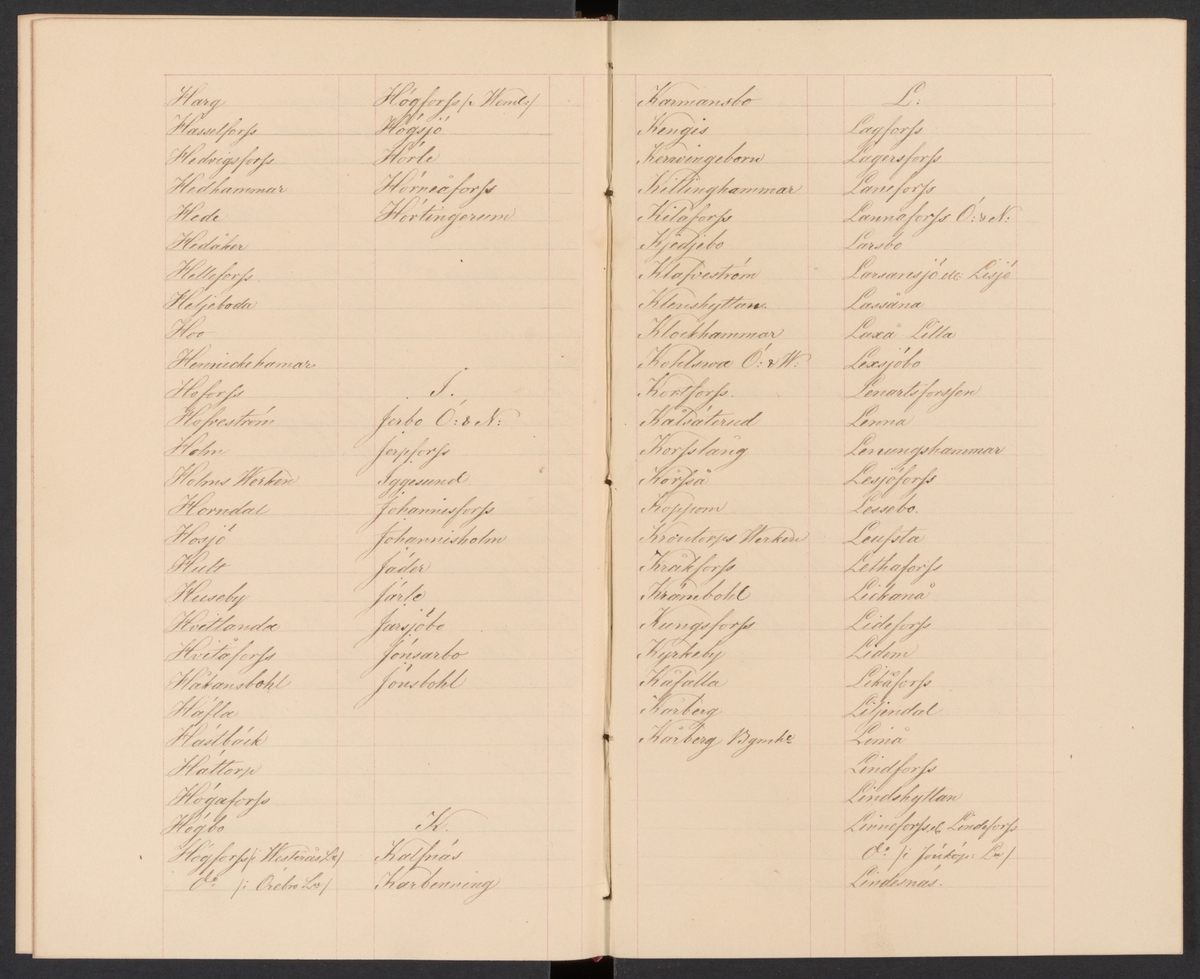 Harg
Hasselforss
Hedvigsforss
Hedhammar
Hede
Hedåker
Helleforss
Heljeboda
Hoo
Henrickehamar
Hoforss
Hofvestróm
Holm
Holms Werken
Horndal
Hosjó
Hult
Huseby
Hvitlanda
Hvitåforss
Håkansbohl
Háfla
Hástbáck
Háttorp
Hógaforss
Hógbo
Hógforss /: Westerås Ln /
do /: Orebro Ln /
Hógforss /: Wend: /
Hógsjó
Hórle
Hórneåforss
Hórlingorum
I.
Jerbo Ó: & N:
Jerpforss
Iggesund
Johannisforss
Johannisholm
Jáder
Járle
Jarsjóbo
Jónsarbo
Jónsbohl
K.
Kalfnás
Karbenning
Karmansbo
Kengis
Killinghammar
Kilaforss
Kjedjebo
Klafrestróm
Klenshyttan
Klockhammar
Kohlswa Ó: & W:
Kortforss
Kålsáterud
Korsslång
Korsså
Koppom
Krontorps Werken
Kråkforss
Kråmbohl
Kungsforss
Kyrkeby
Káfalla
Kárberg
Kárberg Bymke
L:
Lagforss
Lagersforss
Laneforss
Lannaforss Ó: & N:
Larsbo
Larsanesjó el: Lisjó
Lassåna
Laxå Lilla
Laxsjóbo
Lenartsforssen
Lenna
Lenungshammar
Lesjóforss
Lessebo
Leufsta
Lethaforss
Lickanå
Lideforss
Lidem
Likåforss
Liljendal
Limå
Lindforss
Lindshyttan
Linneforss el Lindeforss
do /: Jónkóp: Ln /
Lindesnás.